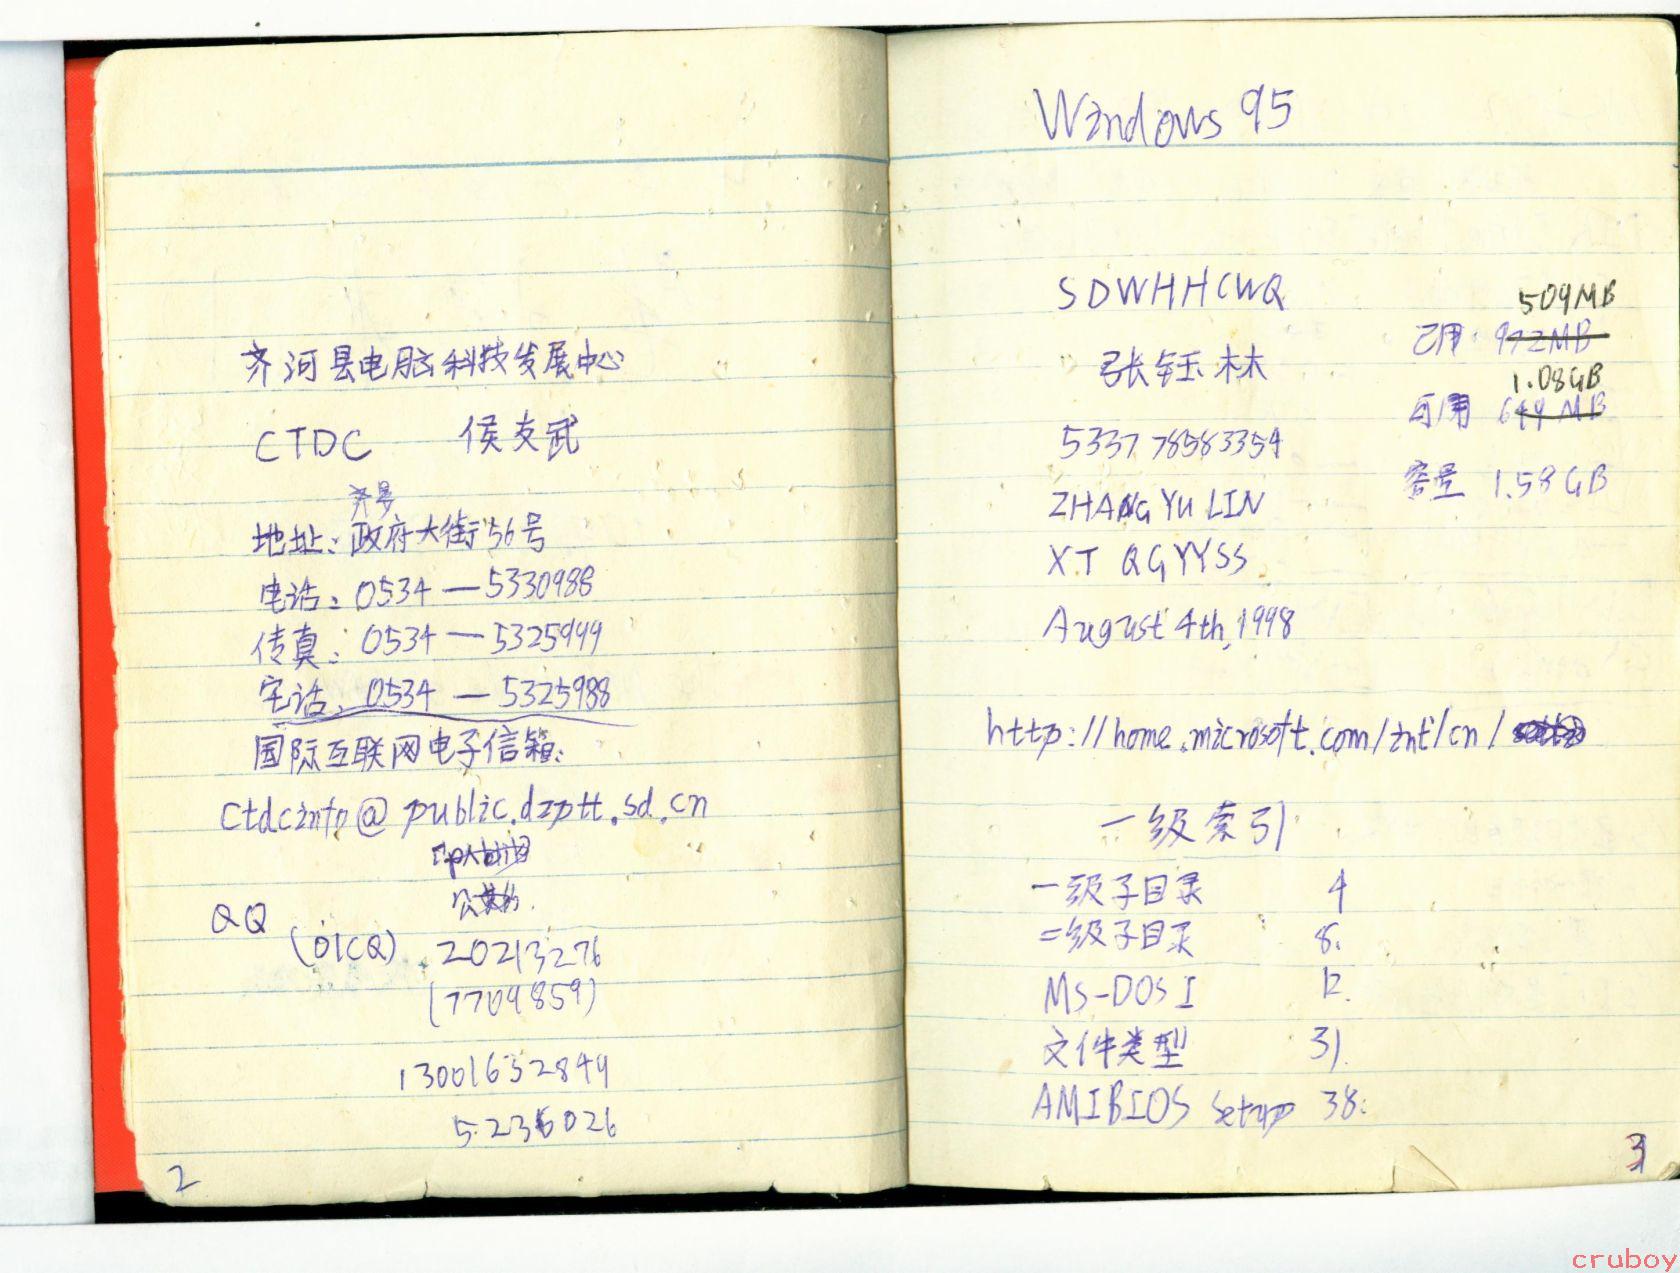 齐河县电脑科技发展中心
CTDC 侯支武
齐晏
地址:政府大街56号
电话:0534—5330988
传真:0534—5325999
宅话:0534—5325988
国际互联网电子信箱:
ctdcinfo@public.dzptt.sd.cn
QQ
(OICQ) 20213276
(7709859)
13001652849
2
Windows 95
SDWHHCWQ
509MB
已用: 972MB
张钰林
1.08GB
可用 649MB
533778583354
容量 1.58GB
ZHANG YU LIN
XT QGYYSS
August 4th, 1998
http://home.microsoft.com/int/cn/
一级索引
一级子目录 4
二级子目录 8.
MS-DOS I 12.
文件类型 31.
AMIBIOS setup 38.
3
cruboy